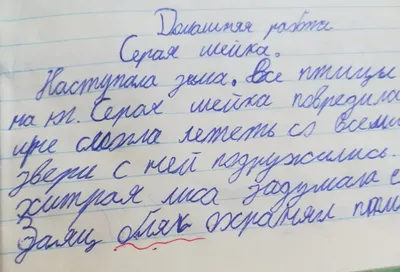 Домашняя работа
Серая шейка.
Наступала зима. Все птицы
на юг. Серая шейка повредила
и не смогла лететь со всеми
звери с ней подружились.
хитрая лиса задумала с
Заяц обляк охранял